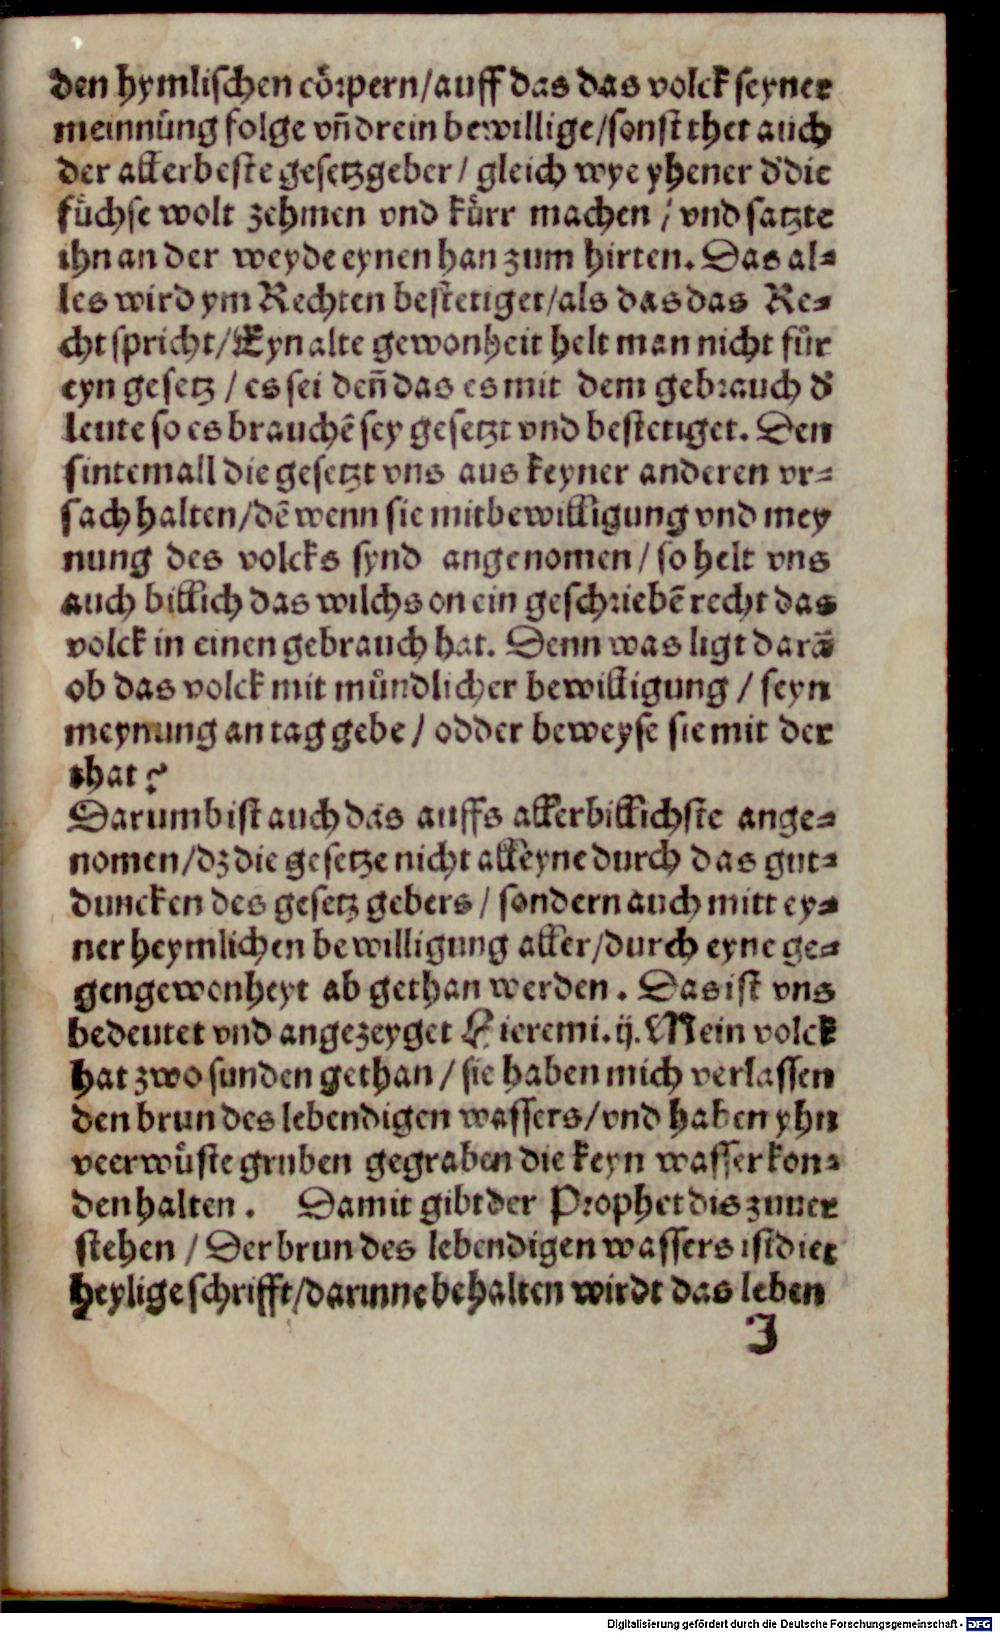 den hymlischen cörpern/auff das das volck seyner
meinnůng folge vn̄ drein bewillige/sonst thet auch
der allerbeste gesetzgeber / gleich wye yhener d'die
füchse wolt zehmen vnd kürr machen / vnd satzte
ihn an der weyde eynen han zum hirten. Das al-
les wird ym Rechten bestetiget/als das das Re-
cht spricht/Eyn alte gewonheit helt man nicht für
eyn gesetz / es sei den̄ das es mit dem gebrauch d'
leute so es brauchē sey gesetzt vnd bestetiget. Den
sintemall die gesetzt vns aus keyner anderen vr-
sach halten/dē wenn sie mitbewilligung vnd mey
nung des volcks synd angenomen / so helt vns
auch billich das wilchs on ein geschriebē recht das
volck in einen gebrauch hat. Denn was ligt darā
ob das volck mit můndlicher bewilligung / seyn
meynung an tag gebe / odder beweyse sie mit der
that?
Darumb ist auch das auffs allerbillichste ange-
nomen/dz die gesetze nicht alleyne durch das gut-
duncken des gesetz gebers / sondern auch mitt ey-
ner heymlichen bewilligung aller/durch eyne ge-
gengewonheyt ab gethan werden. Das ist vns
bedeutet vnd angezeyget Hieremi.ij. Mein volck
hat zwo sunden gethan / sie haben mich verlassen
den brun des lebendigen wassers/vnd haben yhn
veerwüste gruben gegraben die keyn wasser kon-
den halten. Damit gibt der Prophet dis zuuer
stehen / Der brun des lebendigen wassers ist dier
heylige schrifft/darinne behalten wirdt das leben
J
Digitalisierung gefördert durch die Deutsche Forschungsgemeinschaft - DFG